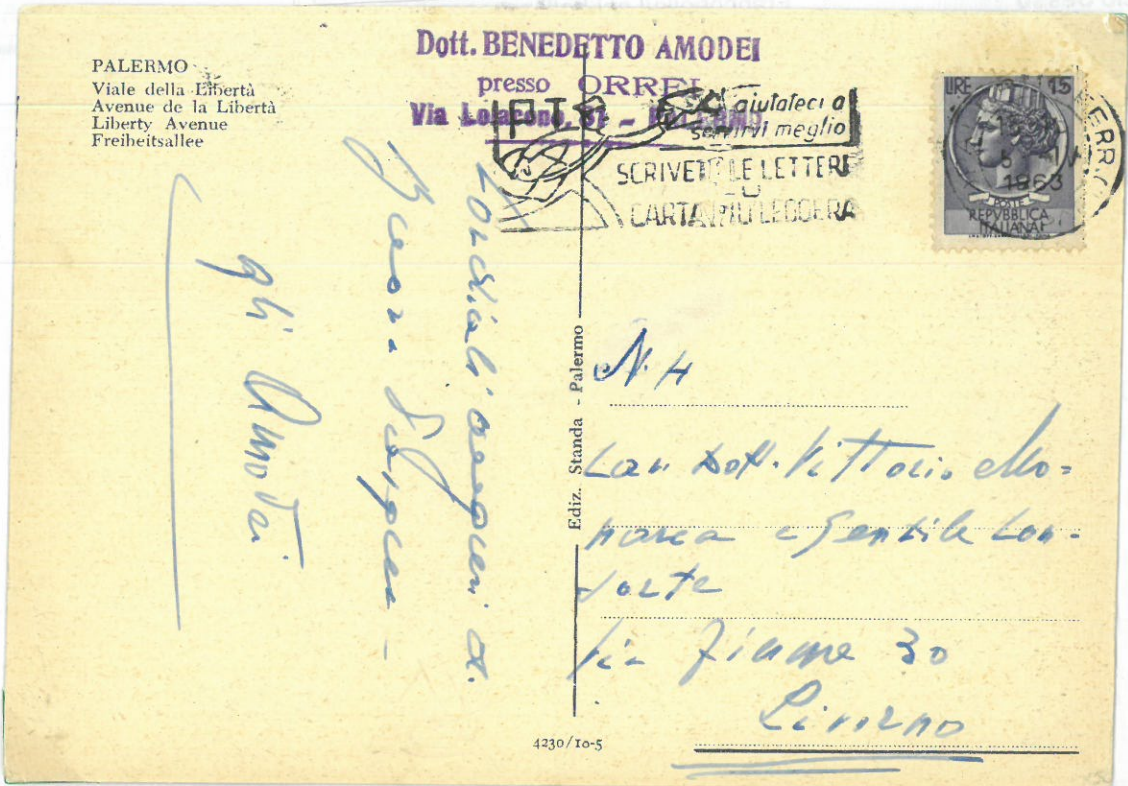 PALERMO
Viale della Libertà
Avenue de la Libertà
Liberty Avenue
Freiheitsallee
Dott. BENEDETTO AMODEI
presso ORREI
Via Lojacono,
aiutateci a
servirvi meglio
SCRIVETE LE LETTERE
SU
CARTA PIÙ LEGGERA
LIRE 15
1963
POSTE
REPVBBLICA
ITALIANA
Cordiali auguri di
Buona Pasqua -
gli Amodei
Ediz. Standa - Palermo
N. H
Cav. Dott. Vittorio Mo=
narca e Gentile Con=
sorte
Via Fiume 30
Livorno
4230/10-5